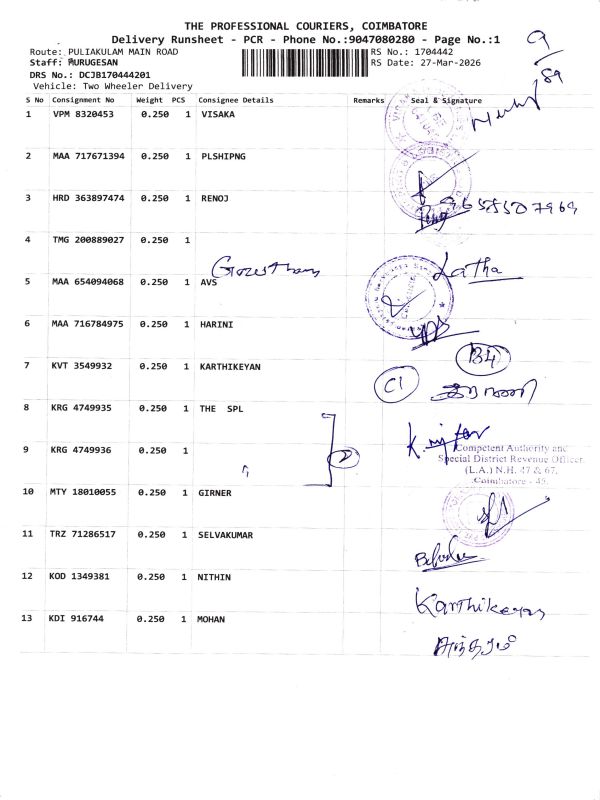 THE PROFESSIONAL COURIERS, COIMBATORE
Delivery Runsheet - PCR - Phone No.:9047080280 - Page No.:1
9/89
Route: PULIAKULAM MAIN ROAD
RS No.: 1704442
Staff: MURUGESAN
RS Date: 27-Mar-2026
DRS No.: DCJB170444201
Vehicle: Two Wheeler Delivery
S No Consignment No Weight PCS Consignee Details Remarks Seal & Signature
1 VPM 8320453 0.250 1 VISAKA
2 MAA 717671394 0.250 1 PLSHIPNG
3 HRD 363897474 0.250 1 RENOJ
4 TMG 200889027 0.250 1
Latha
5 MAA 654094068 0.250 1 AVS
6 MAA 716784975 0.250 1 HARINI
B4
7 KVT 3549932 0.250 1 KARTHIKEYAN
C1
8 KRG 4749935 0.250 1 THE SPL
9 KRG 4749936 0.250 1
2
Competent Authority and
Special District Revenue Officer
(L.A.) N.H. 47 & 67,
Coimbatore - 45.
10 MTY 18010055 0.250 1 GIRNER
11 TRZ 71286517 0.250 1 SELVAKUMAR
12 KOD 1349381 0.250 1 NITHIN
Karthikeyan
13 KDI 916744 0.250 1 MOHAN